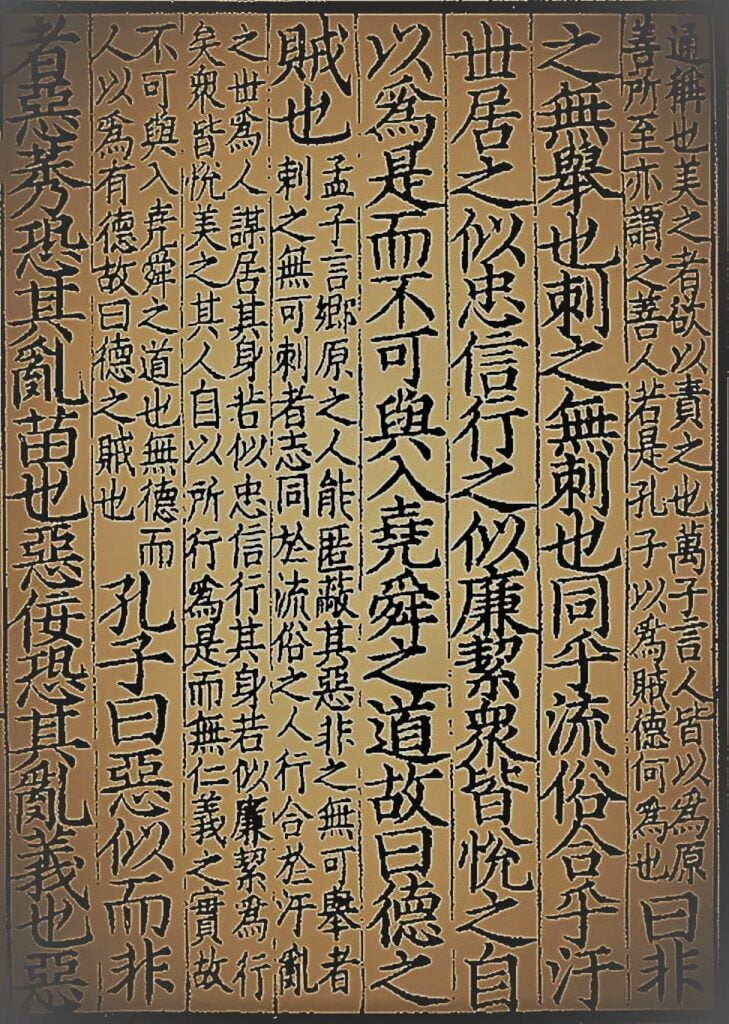 通稱也美之者欲以責之也萬子言人皆以爲原
善所至亦謂之善人若是孔子以爲賊德何爲也
曰非
之無舉也刺之無刺也同乎流俗合乎汙
丗居之似忠信行之似廉絜衆皆悅之自
以爲是而不可與入堯舜之道故曰德之
賊也
孟子言鄉原之人能匿蔽其惡非之無可舉者
刺之無可刺者志同於流俗之人行合於汙亂
之丗爲人謀居其身若似忠信行其身若似廉絜爲行
矣衆皆悅美之其人自以所行爲是而無仁義之實故
不可與入堯舜之道也無德而
人以爲有德故曰德之賊也
孔子曰惡似而非
者惡莠恐其亂苗也惡佞恐其亂義也惡